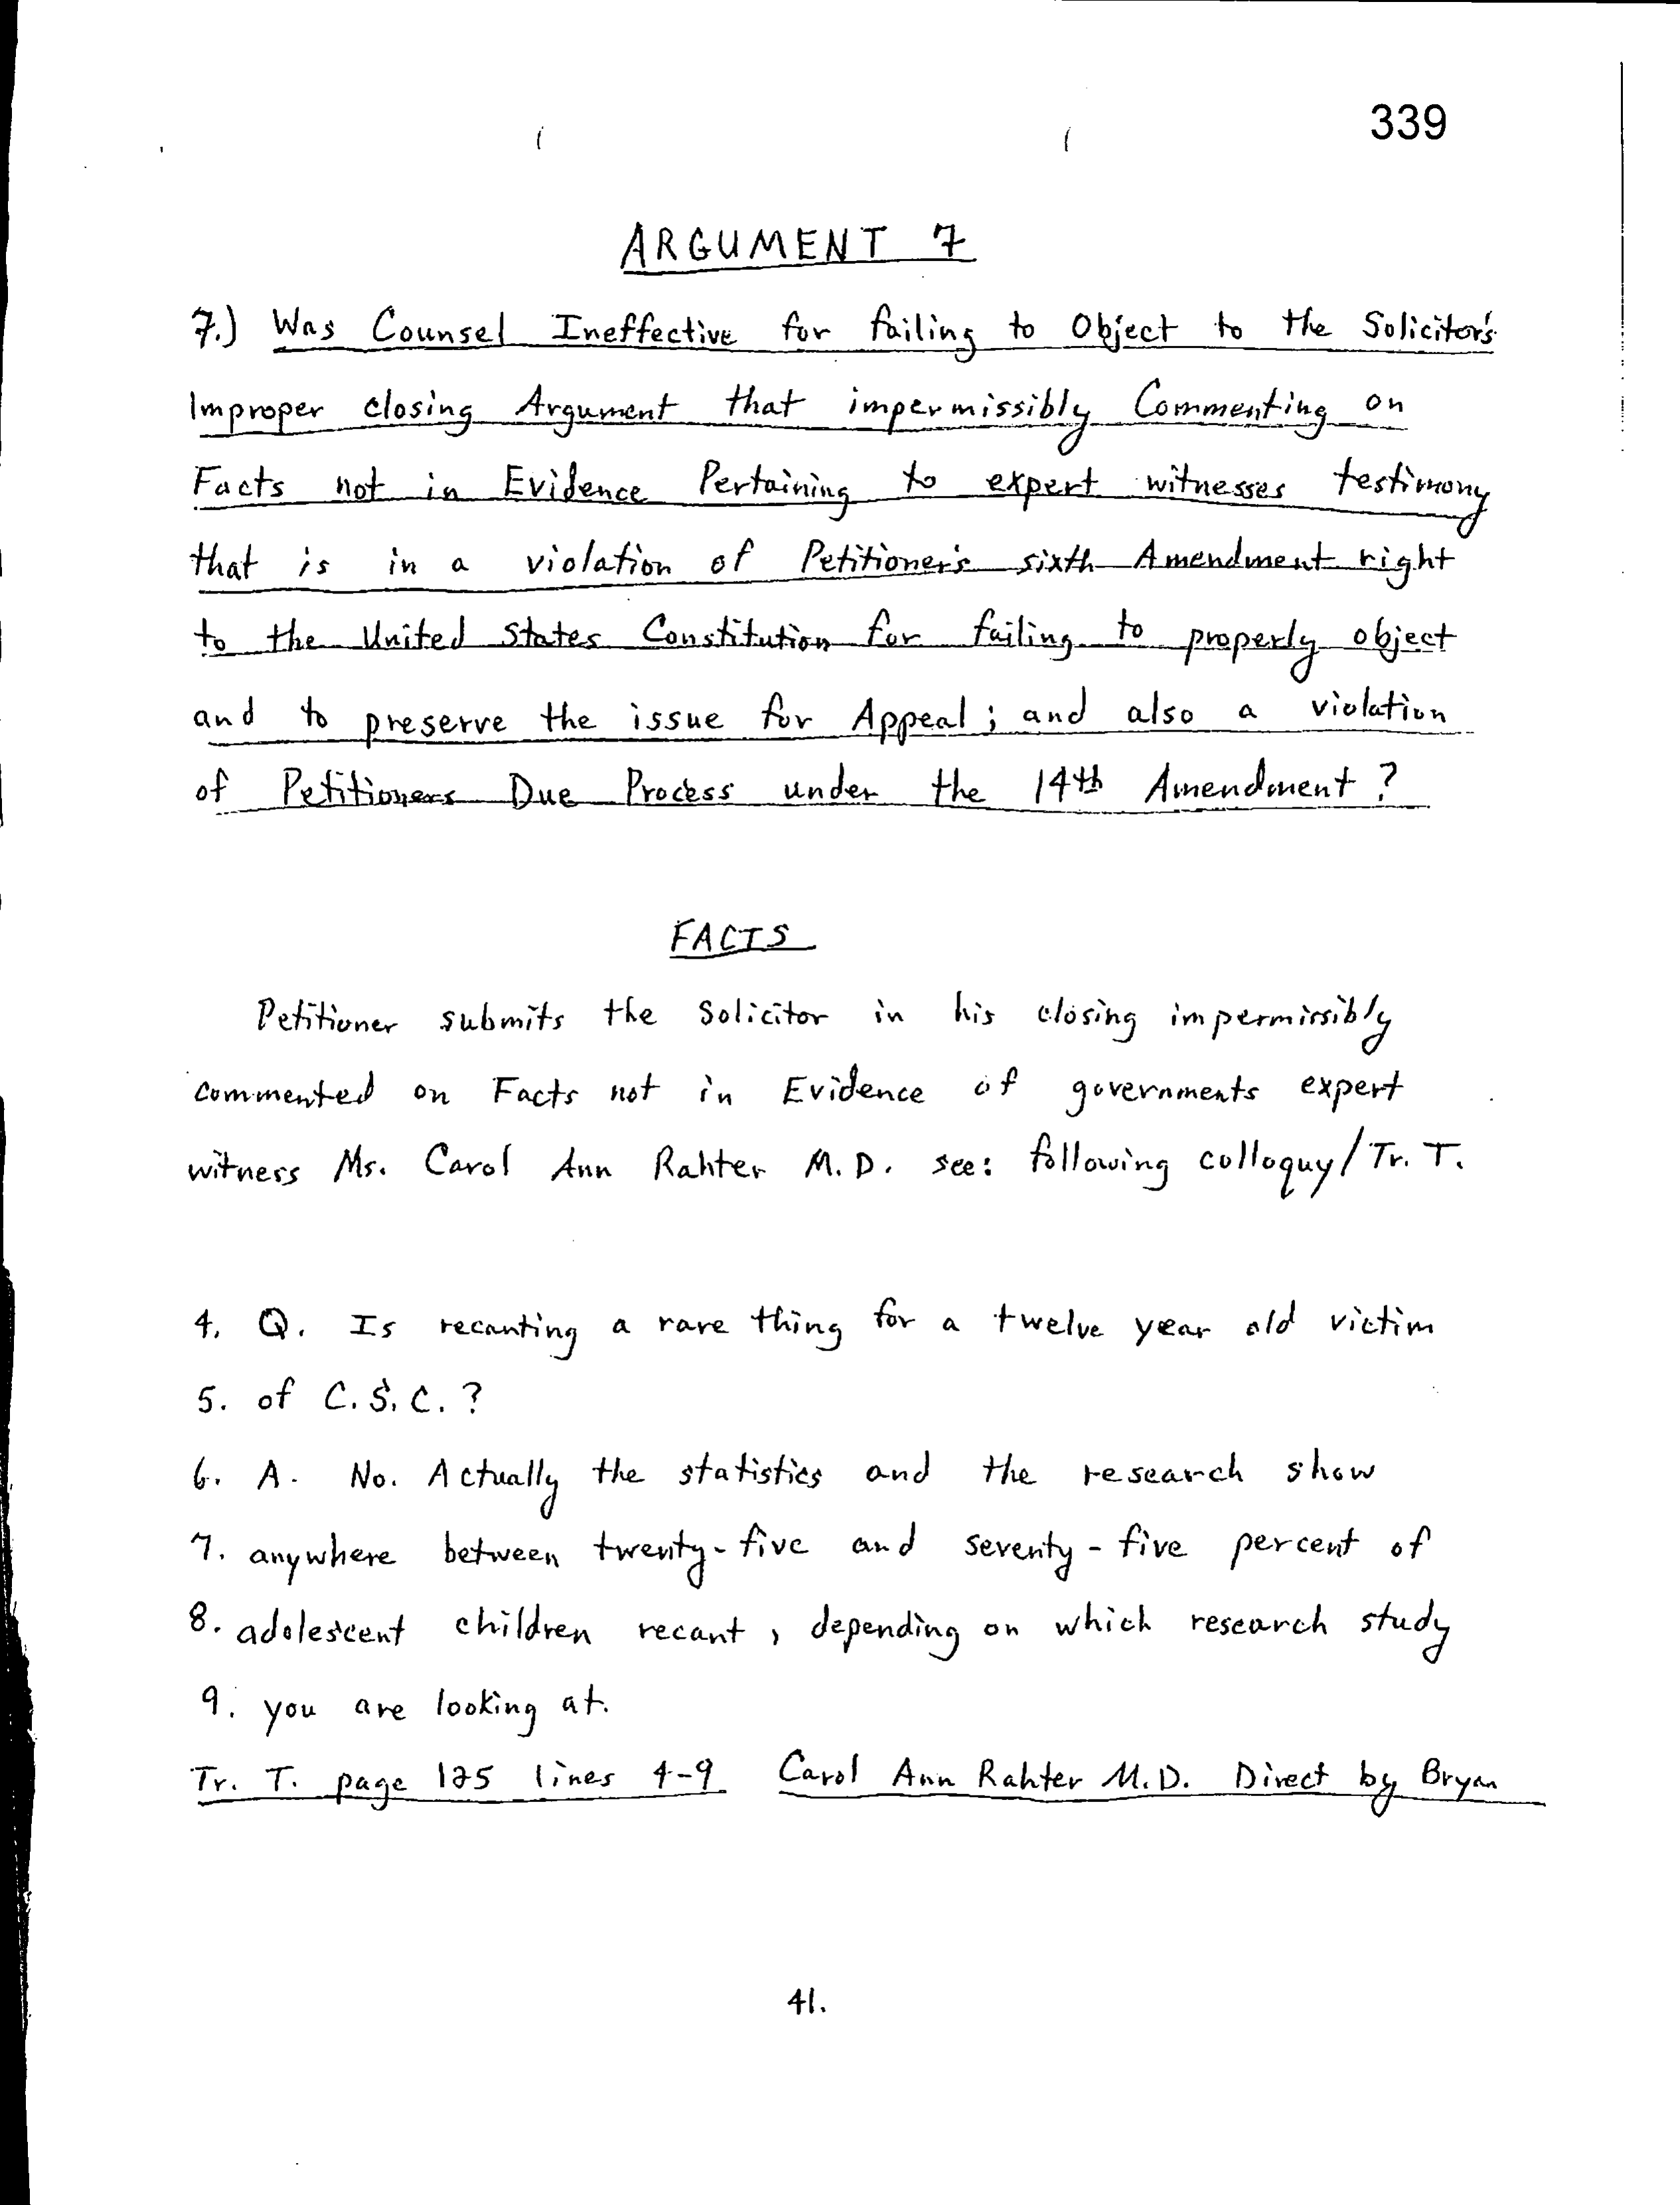 339
ARGUMENT 7
7.) Was Counsel Ineffective for failing to Object to the Solicitor's
Improper closing Argument that impermissibly Commenting on
Facts not in Evidence Pertaining to expert witnesses testimony
that is in a violation of Petitioner's sixth Amendment right
to the United States Constitution for failing to properly object
and to preserve the issue for Appeal; and also a violation
of Petitioners Due Process under the 14th Amendment?
FACTS
Petitioner submits the Solicitor in his closing impermissibly
commented on Facts not in Evidence of governments expert
witness Ms. Carol Ann Rahter M.D. see: following colloquy/Tr. T.
4. Q. Is recanting a rare thing for a twelve year old victim
5. of C.S.C.?
6. A. No. Actually the statistics and the research show
7. anywhere between twenty-five and seventy-five percent of
8. adolescent children recant, depending on which research study
9. you are looking at.
Tr. T. page 125 lines 4-9 Carol Ann Rahter M.D. Direct by Bryan
41.